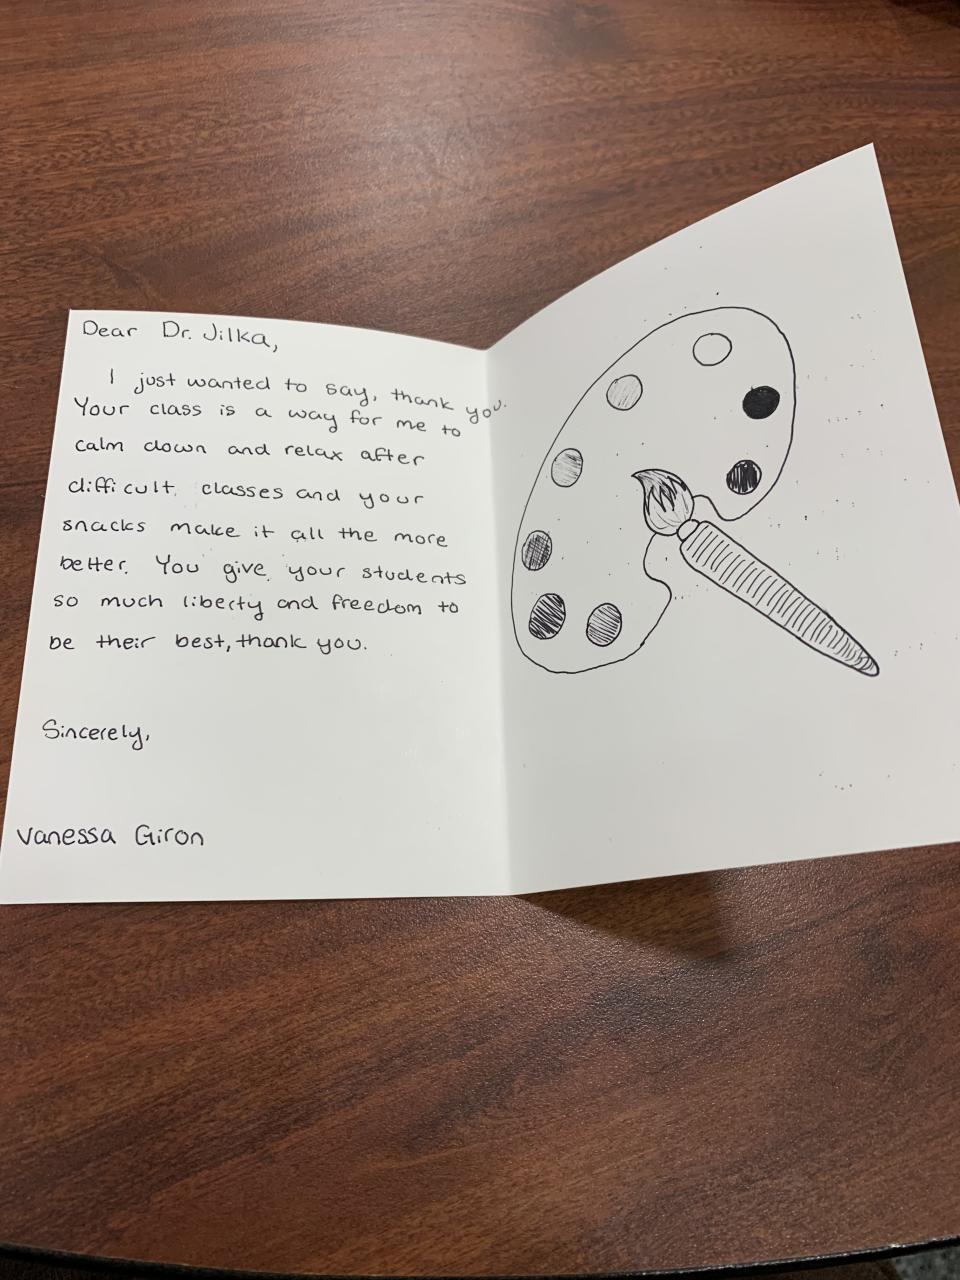 Dear Dr. Jilka,
I just wanted to say, thank you.
Your class is a way for me to
calm down and relax after
difficult classes and your
snacks make it all the more
better. You give your students
so much liberty and freedom to
be their best, thank you.
Sincerely,
Vanessa Giron